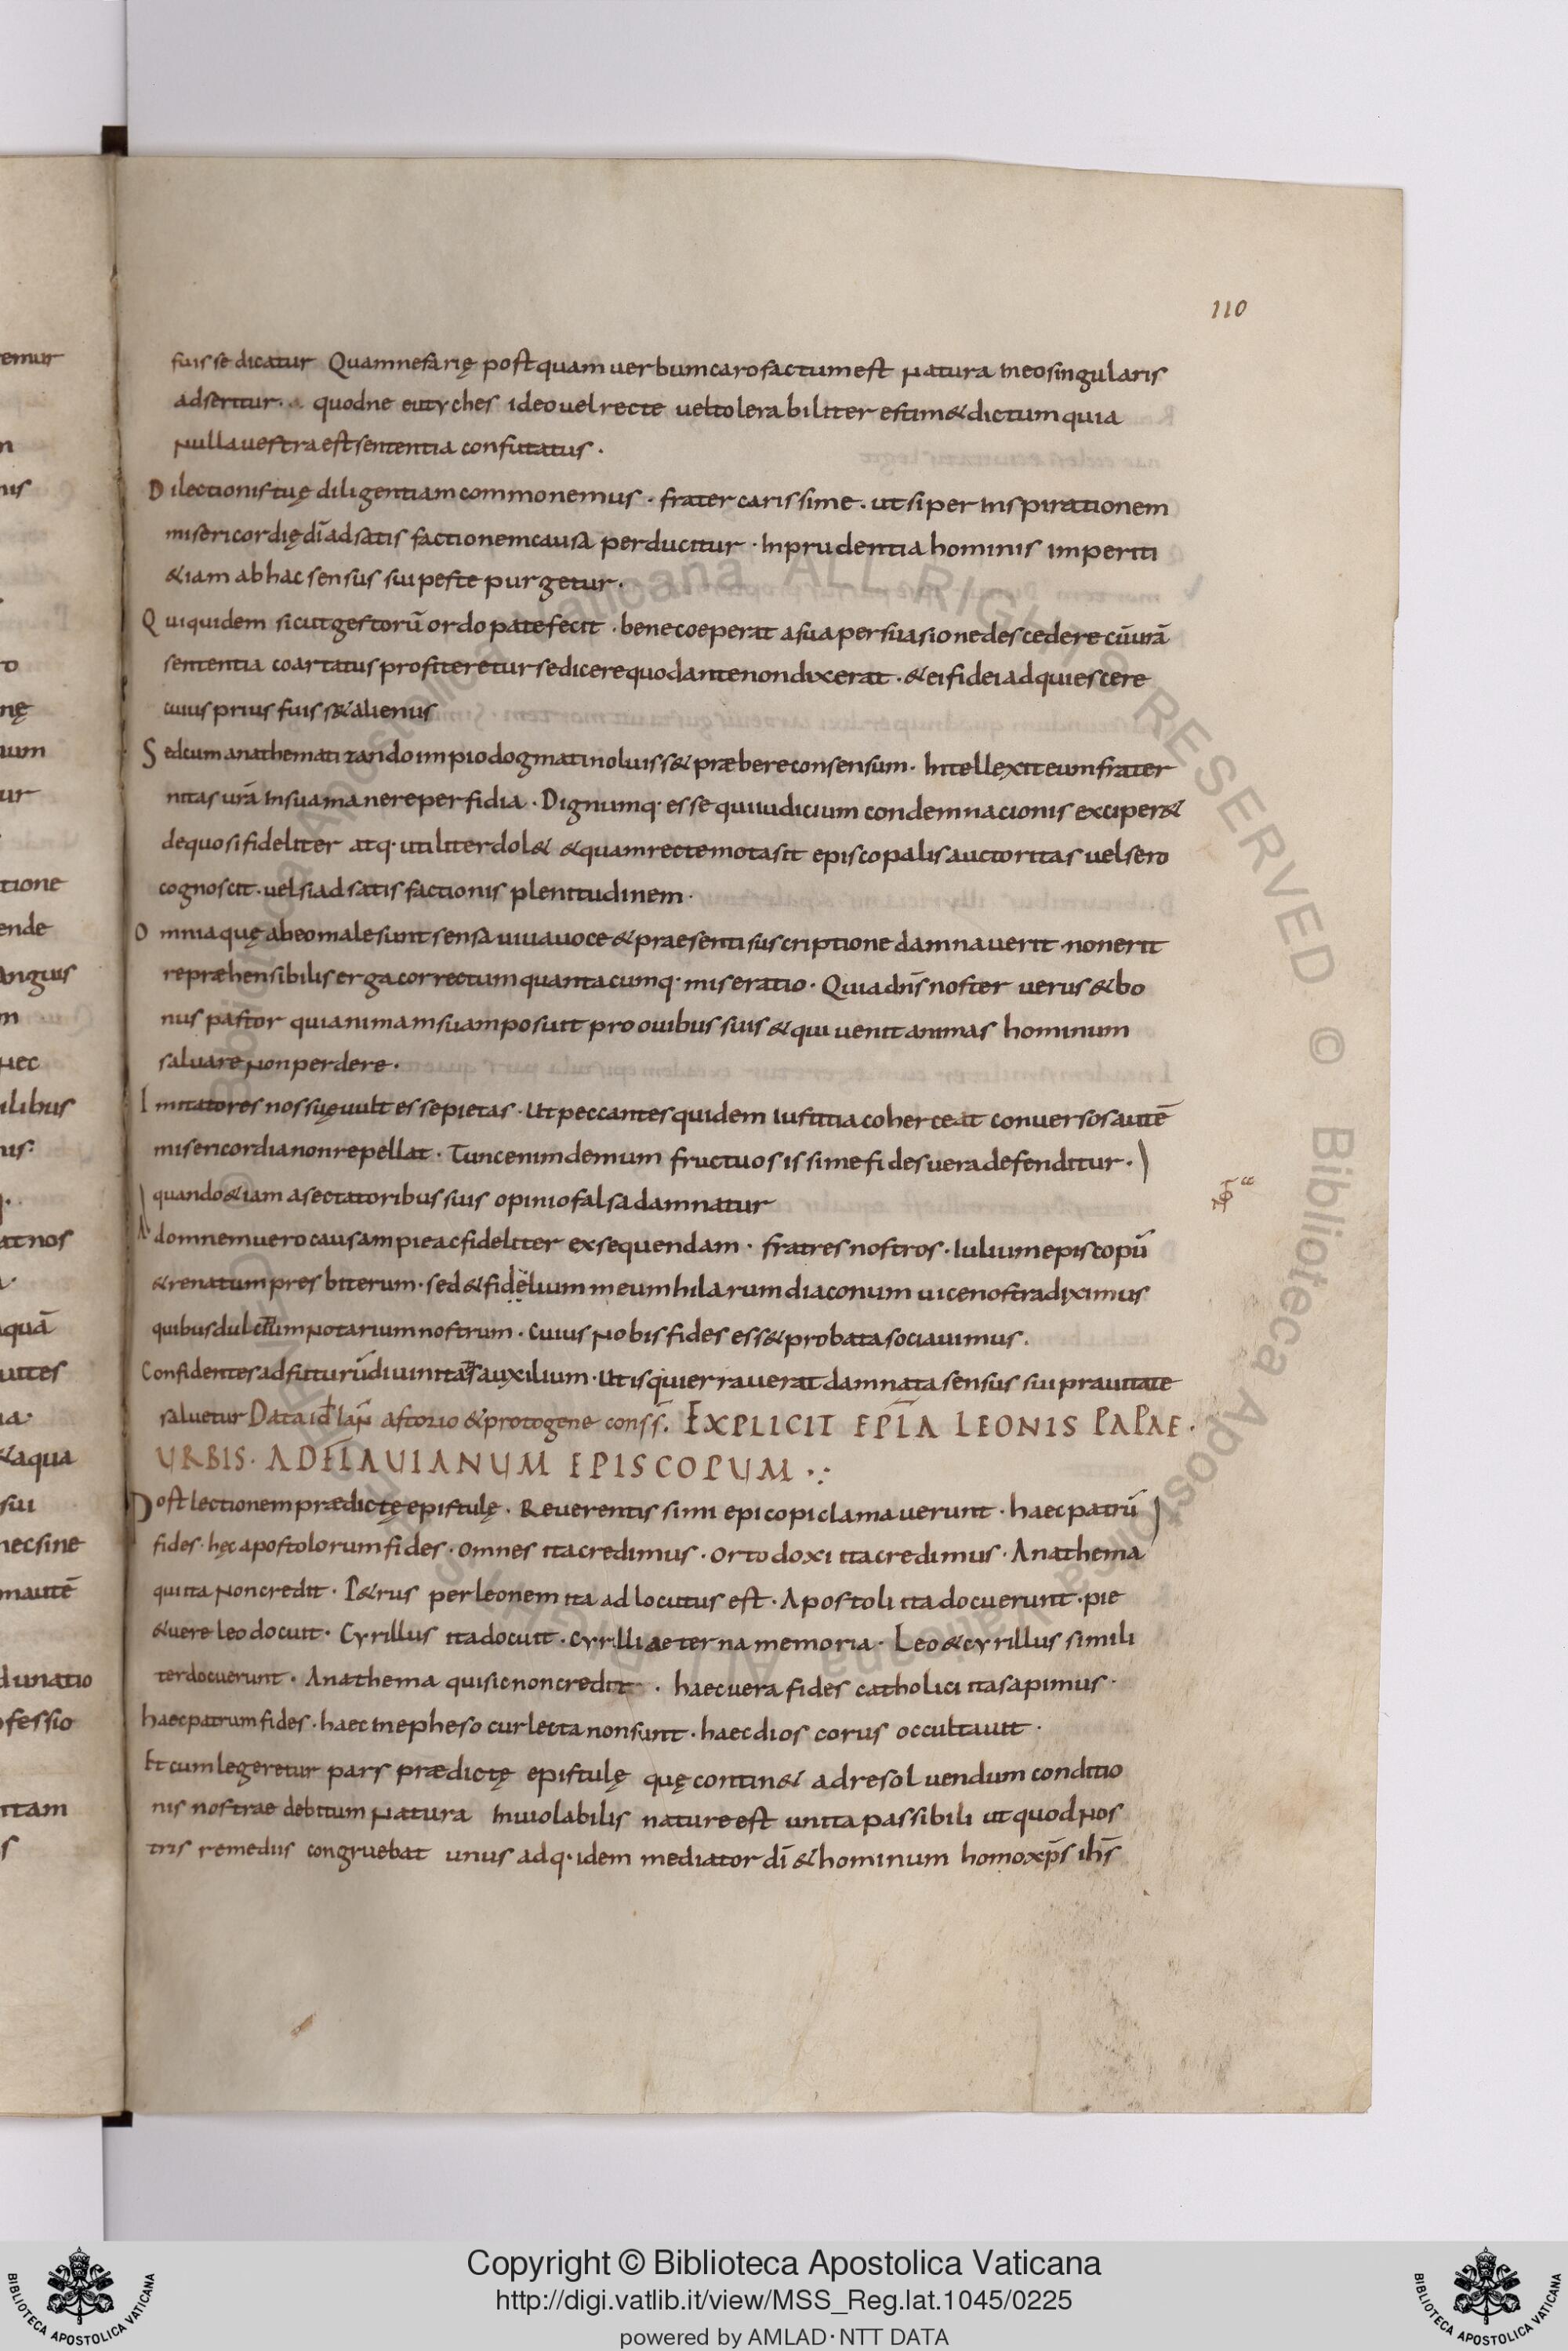 110
fuisse dicatur Quam nefarię postquam uerbum caro factum est natura in eo singularis
adseritur. quod ne eutyches ideo uel recte uel tolerabiliter estim& dictum quia
nulla uestra est sententia confutatus.
Dilectionis tuę diligentiam commonemus. frater carissime. ut si per inspirationem
misericordię dī ad satisfactionem causa perducitur. Inprudentia hominis imperiti
&iam ab hac sensus sui peste purgetur.
Qui quidem sicut gestorū ordo patefecit. bene coeperat a sua persuasione descedere cū urā
sententia coartatus profiteretur se dicere quod ante non dixerat. & ei fidei adquiescere
cuius prius fuiss& alienus
Sed cum anathematizando impio dogmati noluiss& præbere consensum. Intellexit eum frater
nitas urā In sua manere perfidia. Dignumq· esse qui iudicium condemnacionis exciper&
de quo si fideliter atq· utiliter dol& & quam recte mota sit episcopalis auctoritas uel sero
cognoscit. uel si ad satisfactionis plenitudinem.
Omnia quę ab eo male sunt sensa uiua uoce & praesenti suscriptione damnauerit. non erit
repræhensibilis erga correctum quantacumq· miseratio. Quia dn̄s noster uerus & bo
nus pastor qui animam suam posuit pro ouibus suis & qui uenit animas hominum
saluare non perdere.
Imitatores nos suę uult esse pietas. Ut peccantes quidem Iustitia coherceat conuersos autē
misericordia non repellat. Tunc enim demum fructuosissime fides uera defenditur.
quando &iam a sectatoribus suis opinio falsa damnatur
Ad omnem uero causam pie ac fideliter exsequendam. fratres nostros. Iulium episcopū
& renatum presbiterum. sed & fidelium meum hilarum diaconum uice nostra diximus
quibus dulcitium notarium nostrum. Cuius nobis fides ess& probata sociauimus.
Confidentes ad futurū diuinitatis auxilium. Ut is qui erraue­rat damnata sensus sui prauitate
saluetur Data id̄ Iaꝶ astorio & protogene conss̄. EXPLICIT EPL̄A LEONIS PAPAE.
URBIS. AD FLAUIANUM EPISCOPUM
Post lectionem prædictę epistulę. Reuerentissimi epicopi clamauerunt. haec patrū
fides. hęc apostolorum fides. Omnes ita credimus. Ortodoxi ita credimus. Anathema
qui ita non credit. P&rus per leonem ita adlocutus est. Apostoli ita docuerunt. pie
& uere leo docuit. Cyrillus ita docuit. Cyrilli aeterna memoria. Leo & cyrillus simili
ter docuerunt. Anathema qui sic non credit. haec uera fides catholici ita sapimus.
haec patrum fides. haec in epheso cur lecta non sunt. haec dioscorus occultauit.
Et cum legeretur pars prædictę epistulę quę contin& ad resoluendum conditio
nis nostrae debitum natura Inuiolabilis nature est unita passibili ut quod nos
tris remediis congruebat unus adq· idem mediator dī & hominum homo xp̄s ih̄s
Copyright © Biblioteca Apostolica Vaticana
http://digi.vatlib.it/view/MSS_Reg.lat.1045/0225
powered by AMLAD·NTT DATA